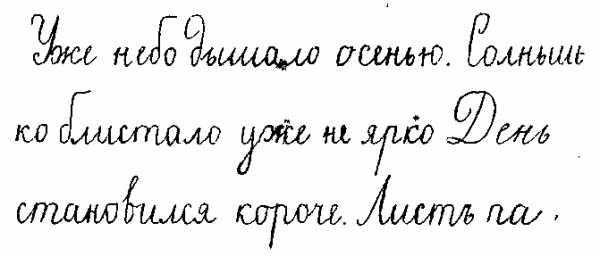 Уже небо дышало осенью. Солнышь
ко блистало уже не ярко День
становился короче. Листъ па